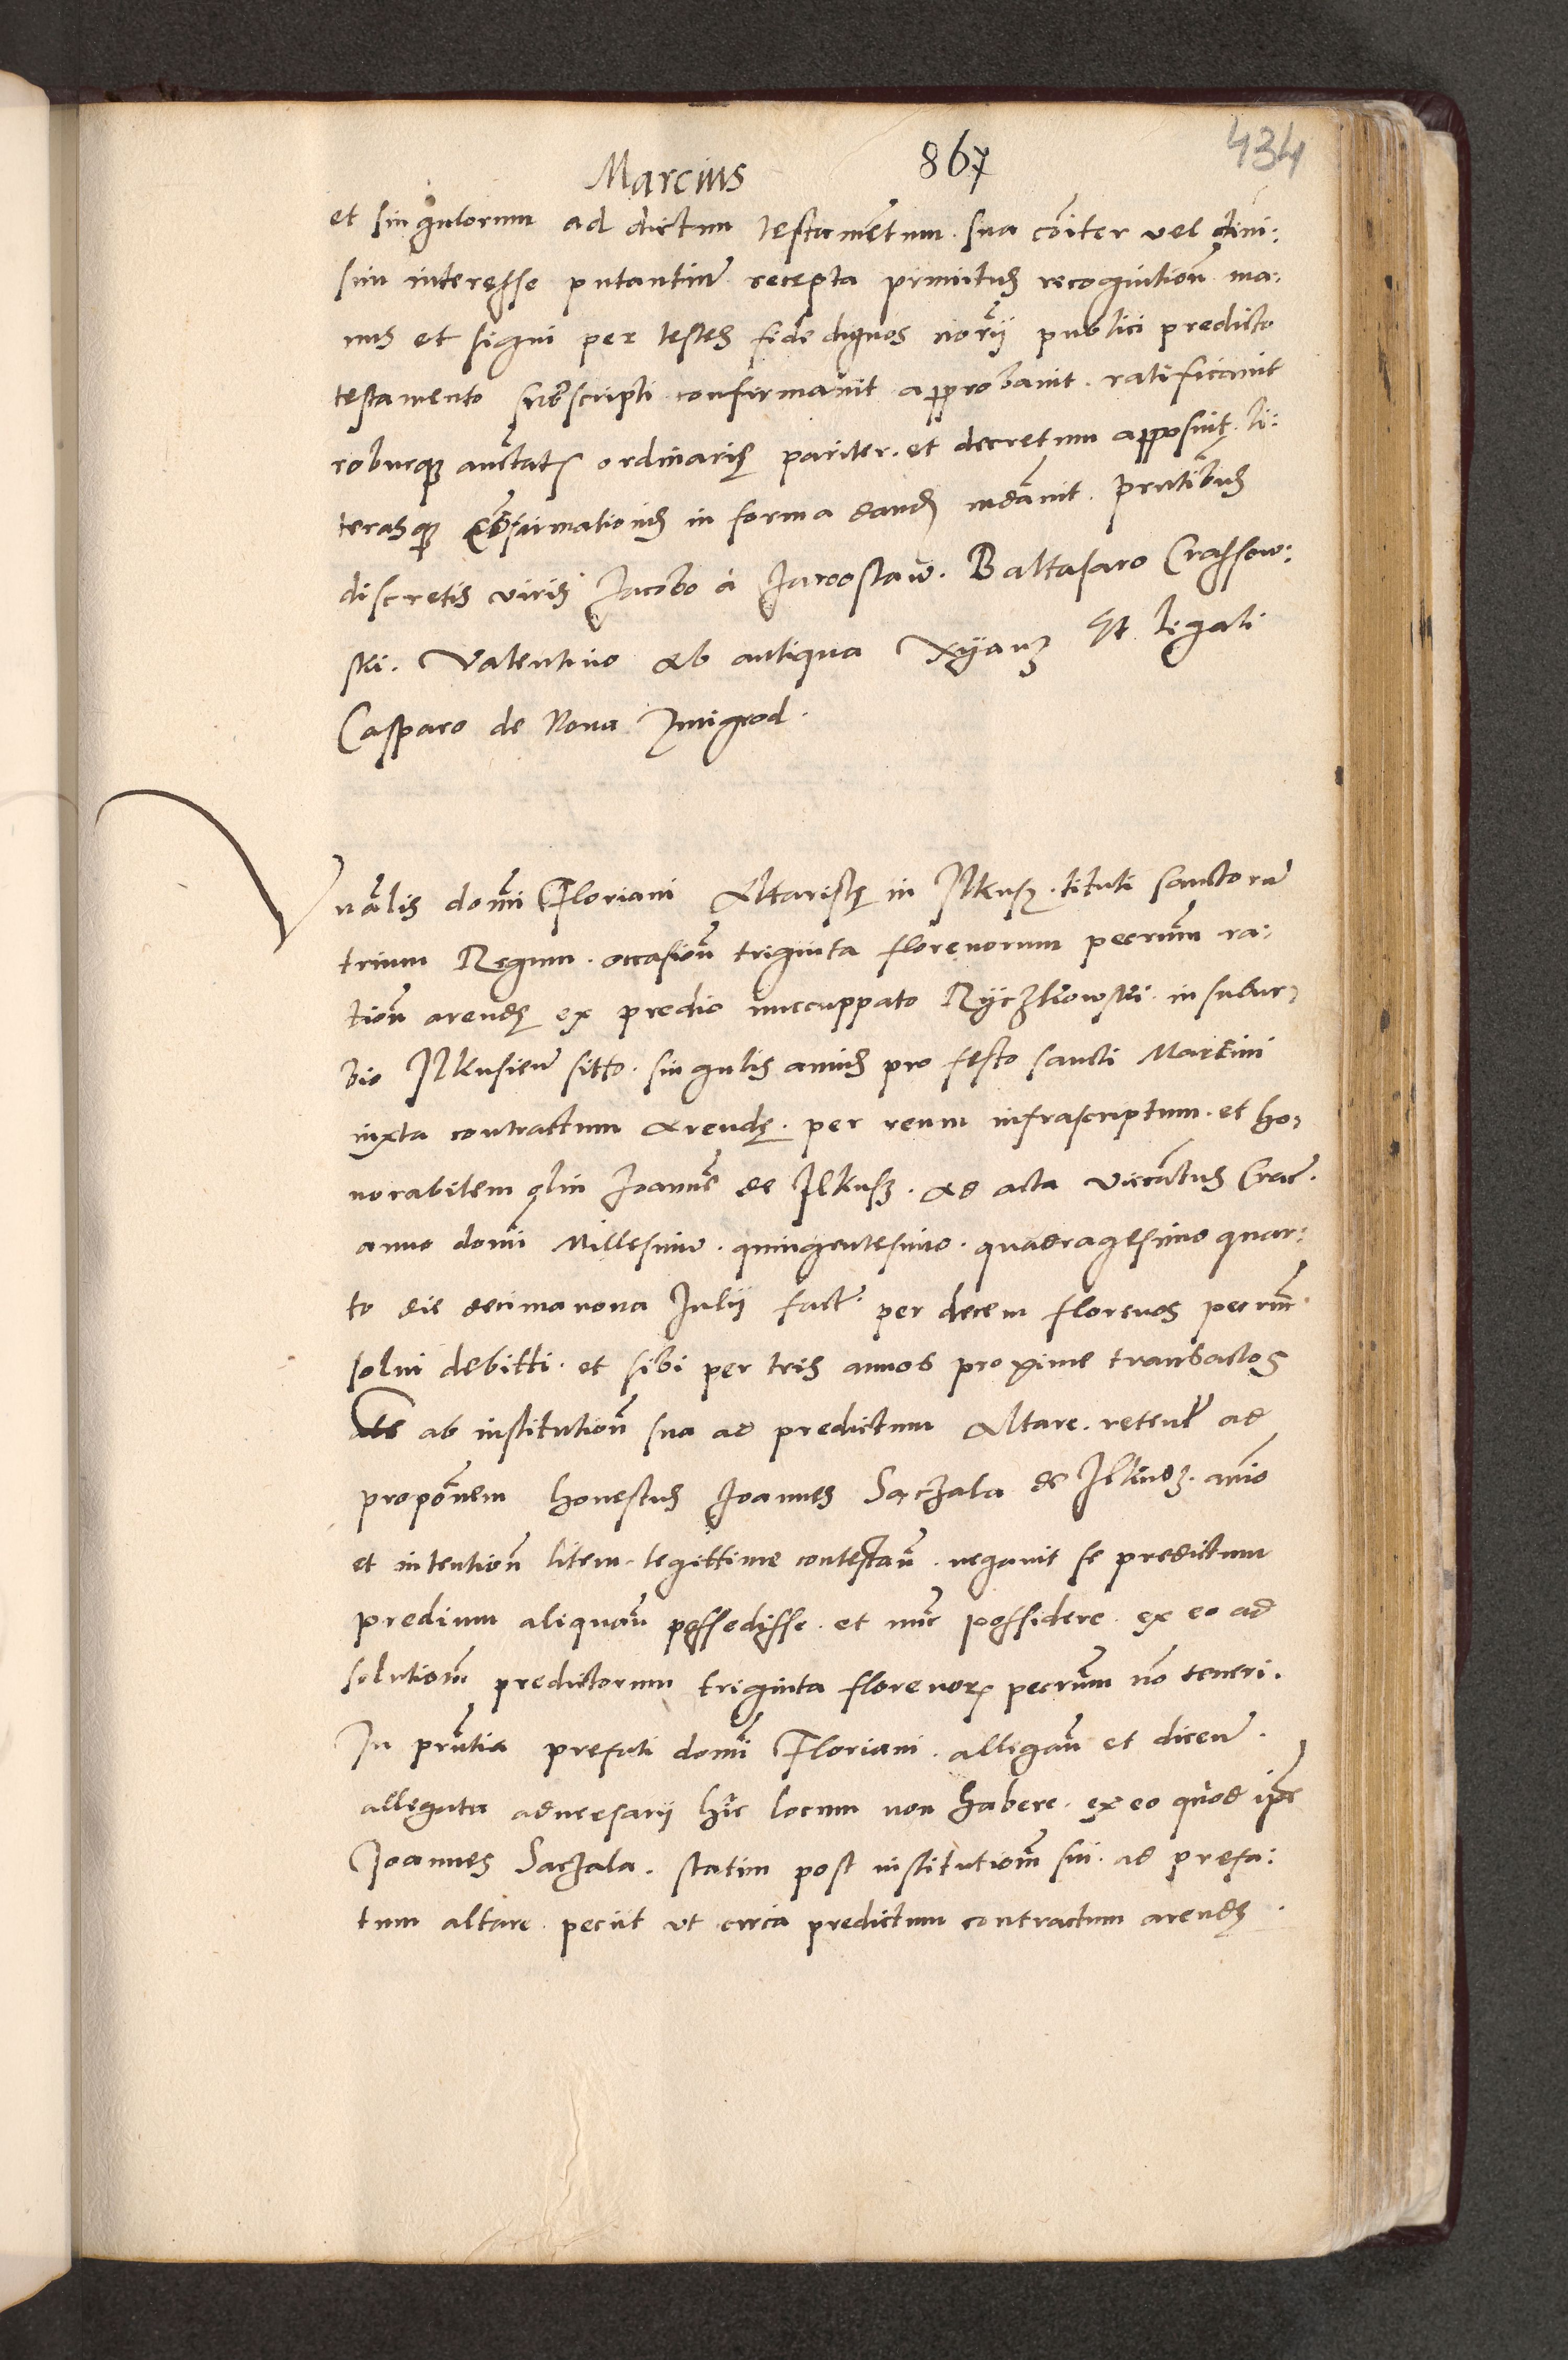 434
867
Marcius
et singulorum ad dictum testamētum sua cōiter vel divi:
sim interesse putantiū recepta primitus recognitioñ ma:
nus et signi per testes fide dignos norȳ publici predicto
testamento subscripti confirmavit approbavit. ratificavit
roburq₃ auctatis ordinariȩ pariter. et decretum apposuit. li:
terasq₃ cōfirmationis in forma dand mdāvit. Pñtibus
discretis viris Jacobo á Jaroslaw. Baltasaro Crassow:
ski. Valentino ab antiqua Xyanz et legali
Casparo de Nova Zmigrod.
Vñalis domī Floriani Altaristȩ in Ilkusz. tituli sanctorū
trium Regum. occasioñ triginta florenorum pecruñ ra:
tioñ arendȩ ex predio nuccuppato Ryczkowski in subur,
bio Ilkusieñ sitto. singulis annis pro festo sancti Martini
iuxta contractum arendȩ. per reum infrascriptum. et ho,
norabilem olim Joannē de Ilkusz. ad acta vicecātus Crac̄.
anno domī Millesimo. quingentesimo. quadragesimo quar:
to die decimanona Julij fact̄. per decem florenos pecruñ
solui debitti. et sibi per tris annos proxime transactos
ab institutioñ sua ad predictum Altare. retent̄ ad
propōnem honestus Joannes Saczala de Ilkusz. anīo
et intentioñ litem. legittime contestañ. negavit se predictum
predium aliquañ possedisse. et nūc possidere. ex eo ad
solutioñ predictorum triginta florenor₂ pecruñ nō teneri.
In pñtia prefati domī Floriani. allegañ et diceñ.
allegata adversarij hic locum non habere. ex eo quod ipē
Joannes Saczala. statim post institutioñ sui ad prefa:
tum altare. peciit ut circa predictum contractum arendȩ.